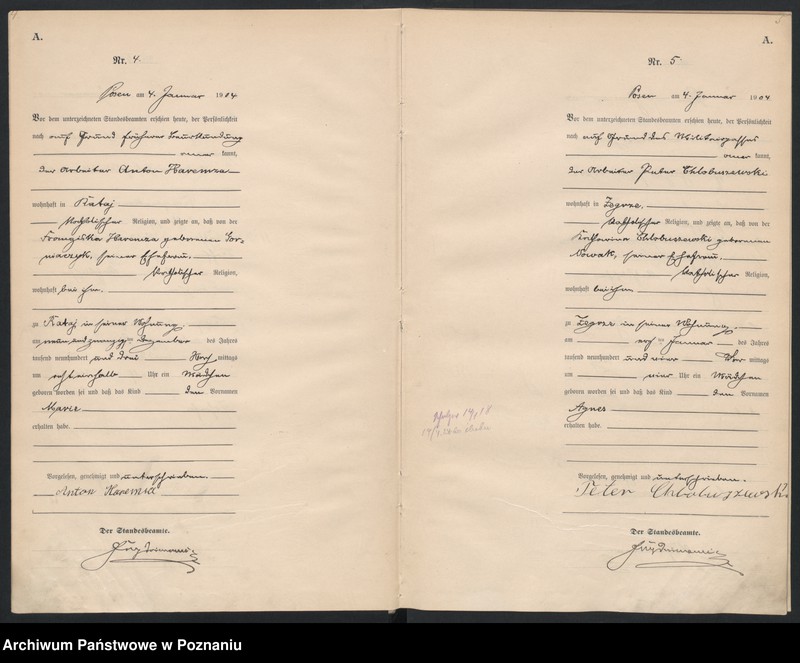 A.
Nr. 4.
Posen am 4. Januar 1904
Vor dem unterzeichneten Standesbeamten erschien heute, der Persönlichkeit
nach auf Grund früherer Beurkundung
kannt,
der Arbeiter Anton Haremza
wohnhaft in Kataj
katholischer Religion, und zeigte an, daß von der
Franziska Haremza geborenen Gor-
niaczyk, seiner Ehefrau,
katholischer Religion,
wohnhaft bei ihm
zu Kataj in seiner Wohnung
am neunundzwanzigsten Dezember des Jahres
tausend neunhundert und drei Vormittags
um acht einhalb Uhr ein Mädchen
geboren worden sei und daß das Kind den Vornamen
erhalten habe.
Vorgelesen, genehmigt und unterschrieben.
Anton Haremza
Der Standesbeamte.
A.
Nr. 5
Posen am 4. Januar 1904.
Vor dem unterzeichneten Standesbeamten erschien heute, der Persönlichkeit
nach auf Grund des Militärpasses
kannt,
der Arbeiter Peter Chlobuszewski
wohnhaft in Zegrze
katholischer Religion, und zeigte an, daß von der
Katharina Chlobuszewski geborenen
Nowak, seiner Ehefrau,
katholischer Religion,
wohnhaft bei ihm
zu Zegrze in seiner Wohnung
am Januar des Jahres
tausend neunhundert und vier Vormittags
um vier Uhr ein Mädchen
geboren worden sei und daß das Kind den Vornamen
Agnes
erhalten habe.
Vorgelesen, genehmigt und unterschrieben.
Peter Chlobuszewski
Der Standesbeamte.
Archiwum Państwowe w Poznaniu